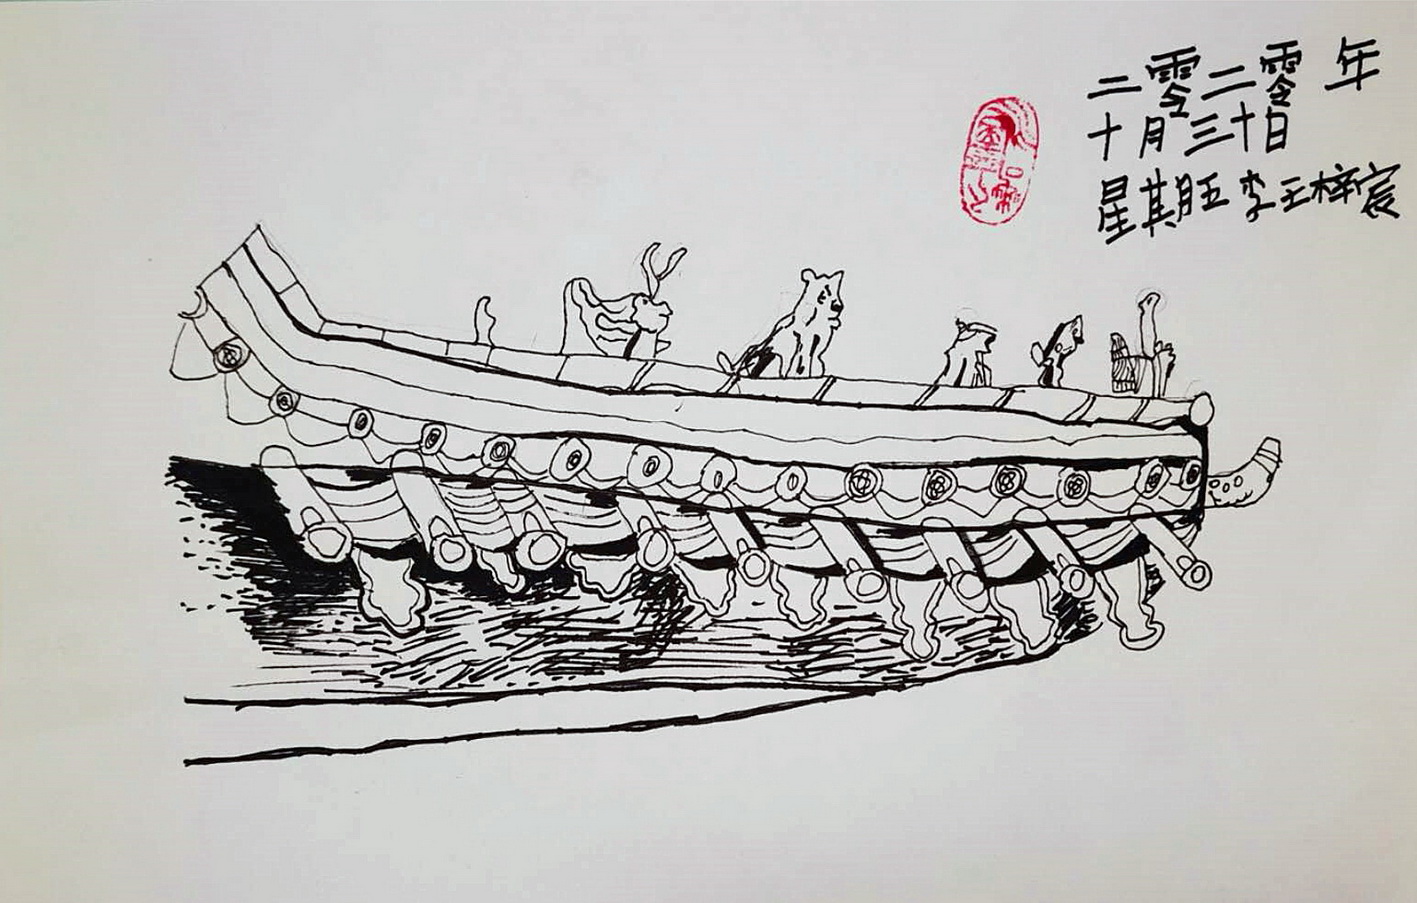 二零二零年
十月三十日
星期五 李王梓宸